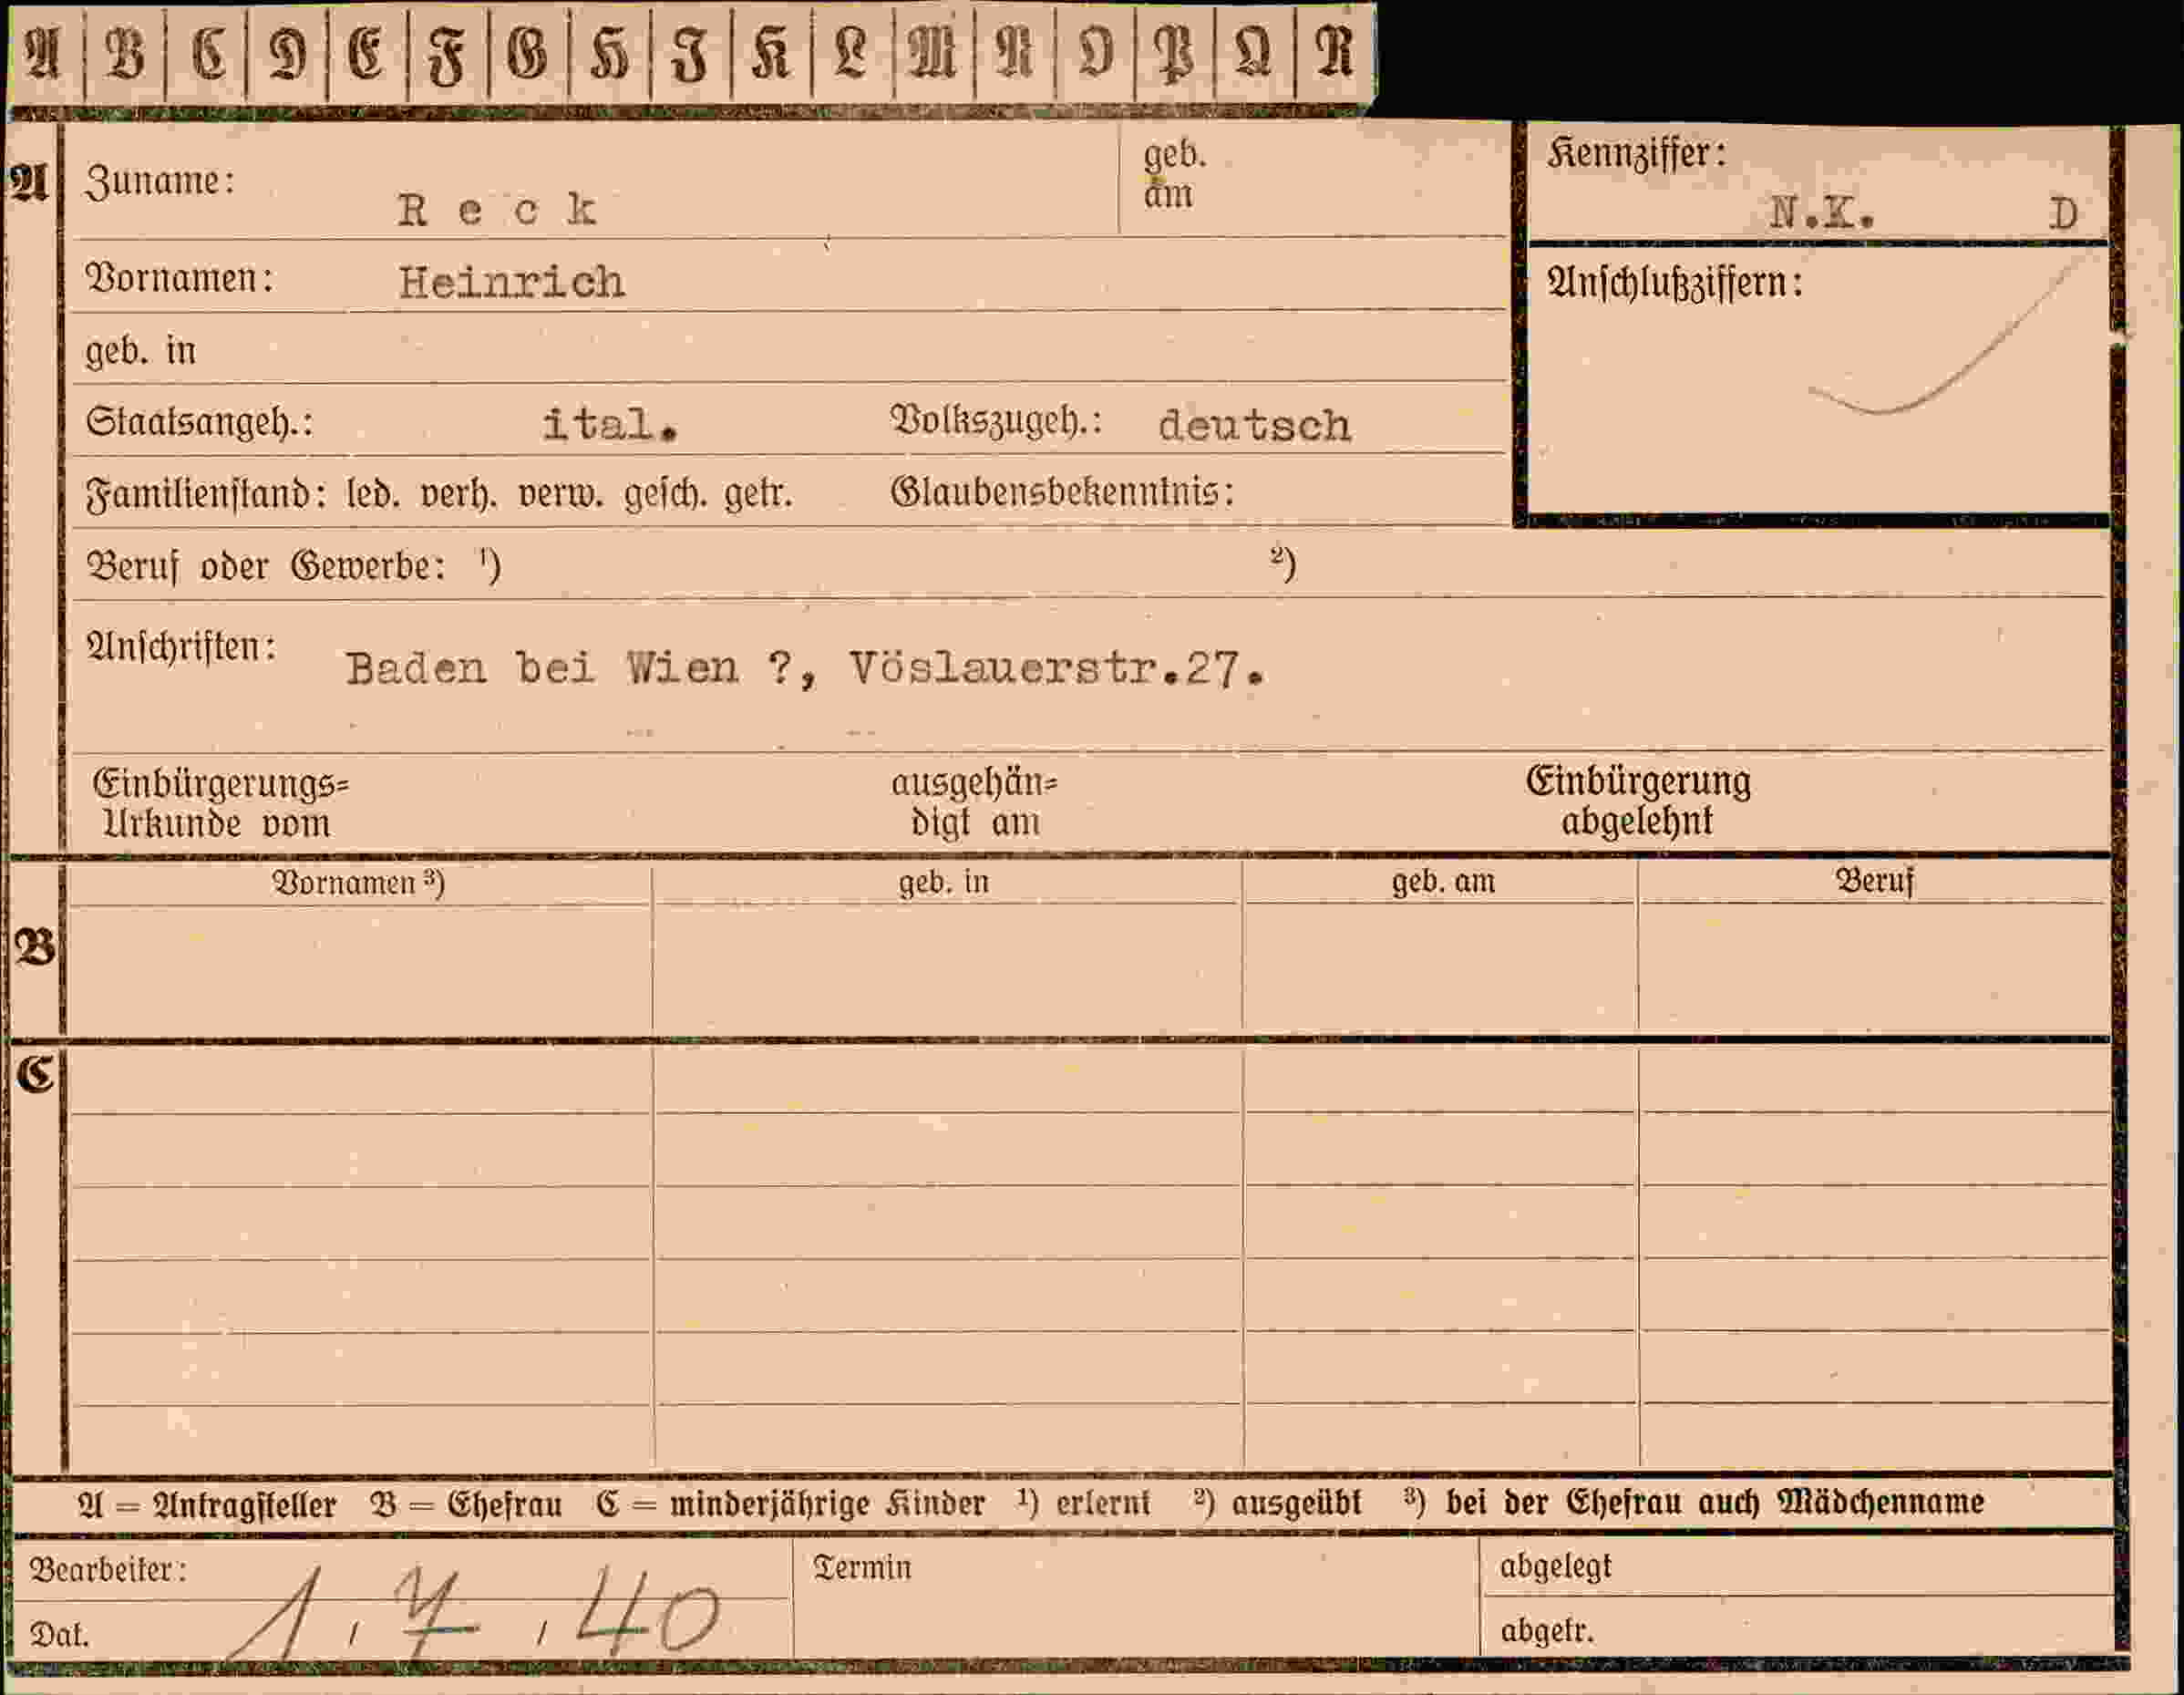 A B C D E F G H I K L M N O P Q R
A Zuname: Reck geb. am
Kennziffer: N.K. D
Vornamen: Heinrich
Anschlußziffern:
geb. in
Staatsangeh.: ital. Volkszugeh.: deutsch
Familienstand: led. verh. verw. gesch. getr. Glaubensbekenntnis:
Beruf oder Gewerbe: ¹) ²)
Anschriften: Baden bei Wien ?, Vöslauerstr.27.
Einbürgerungs= ausgehän= Einbürgerung
Urkunde vom digt am abgelehnt
Vornamen ³) geb. in geb. am Beruf
B
C
A = Antragsteller B = Ehefrau C = minderjährige Kinder ¹) erlernt ²) ausgeübt ³) bei der Ehefrau auch Mädchenname
Bearbeiter: Termin abgelegt
Dat. 1.7.40 abgetr.